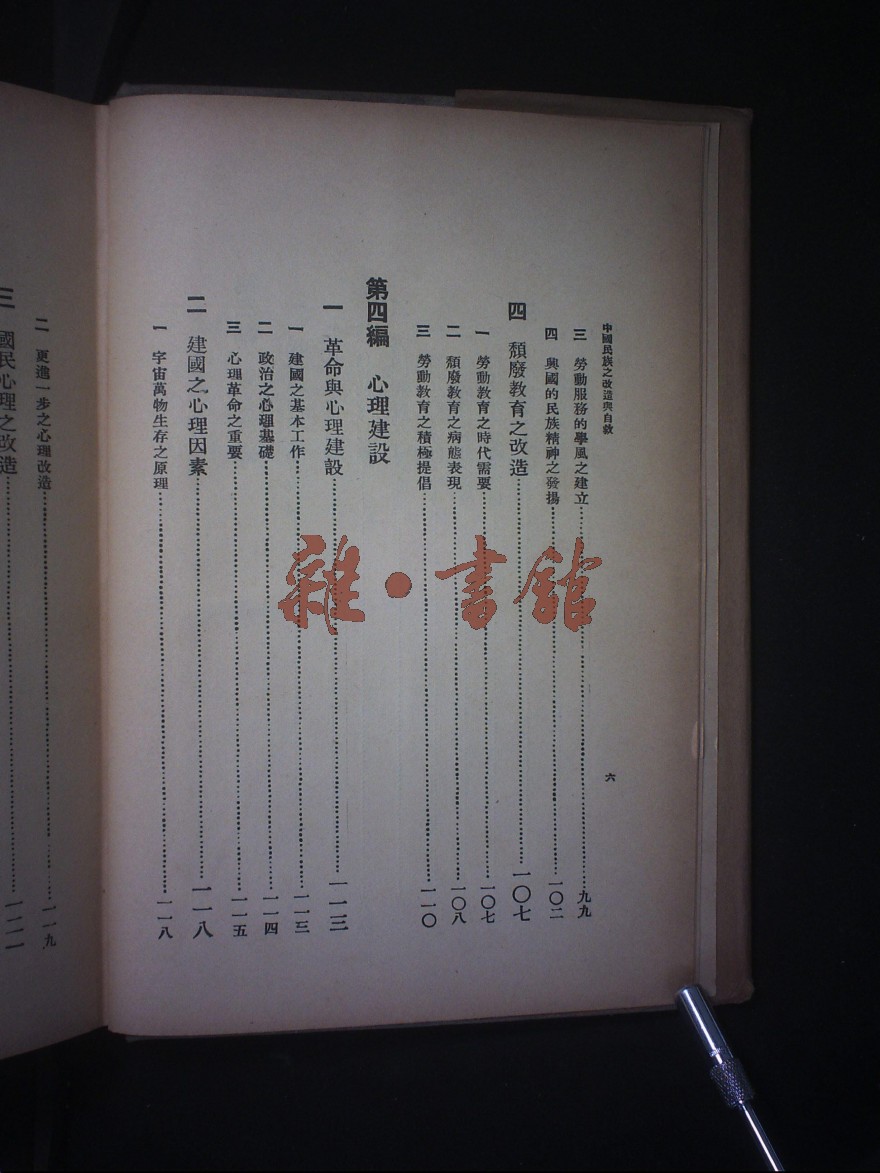 中國民族之改造與自救
六
三 勞動服務的學風之建立……九九
四 興國的民族精神之發揚……一〇二
四 頹廢教育之改造……一〇七
一 勞動教育之時代需要……一〇七
二 頹廢教育之病態表現……一〇八
三 勞動教育之積極提倡……一一〇
第四編 心理建設
一 革命與心理建設……一一三
一 建國之基本工作……一一三
二 政治之心理基礎……一一四
三 心理革命之重要……一一五
二 建國之心理因素……一一八
一 宇宙萬物生存之原理……一一八
二 更進一步之心理改造……一一九
三 國民心理之改造……一二一
雜·書館